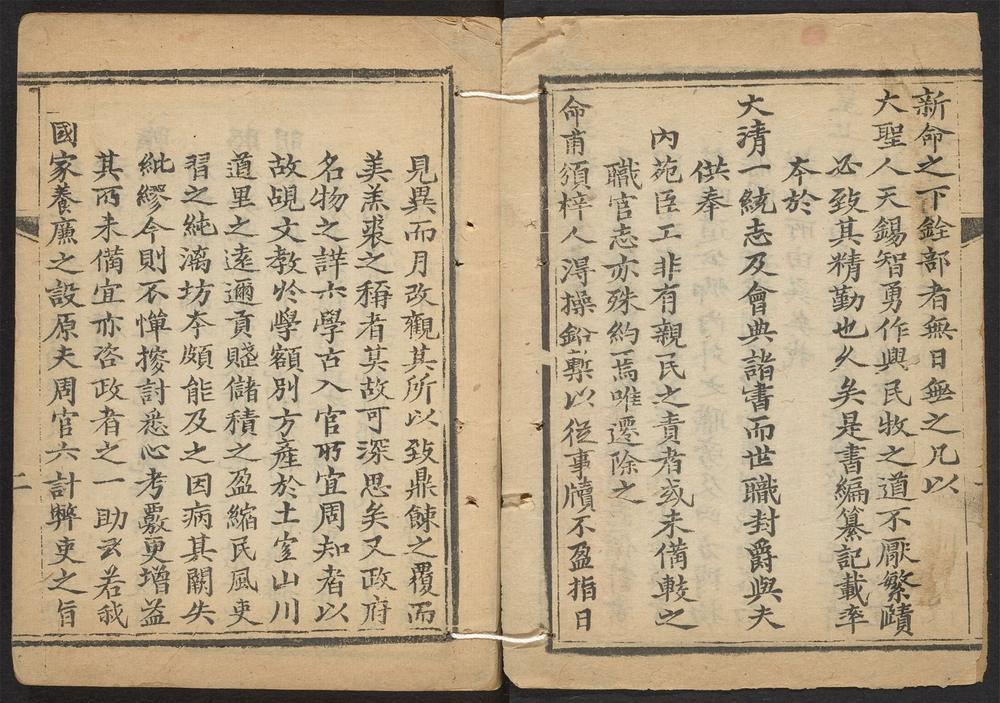 新命之下銓部者無日無之凡以
大聖人天錫智勇作與民牧之道不厭繁賾
必致其精勤也久矣是書編纂記載率
夲於
大清一統志及會典諸書而世職封爵與夫
供奉
內苑臣工非有親民之責者或未備較之
職官志亦殊約焉唯遷除之
命甫須梓人淂操鉛槧以從事牘不盈指日
見異而月改觀其所以致鼎餗之覆而
美羔裘之稱者其故可深思矣又政府
名物之詳亦學古入官所宜周知者以
故覘文教於學額別方產於土宐山川
道里之遠邇貢賤儲積之盈縮民風吏
習之純漓坊夲頗能及之因病其闕失
紕繆今則不憚搜討悉心考覈更增益
其所未備宜亦咨政者之一助云若我
國家養廉之設原夫周官六計弊吏之旨
二